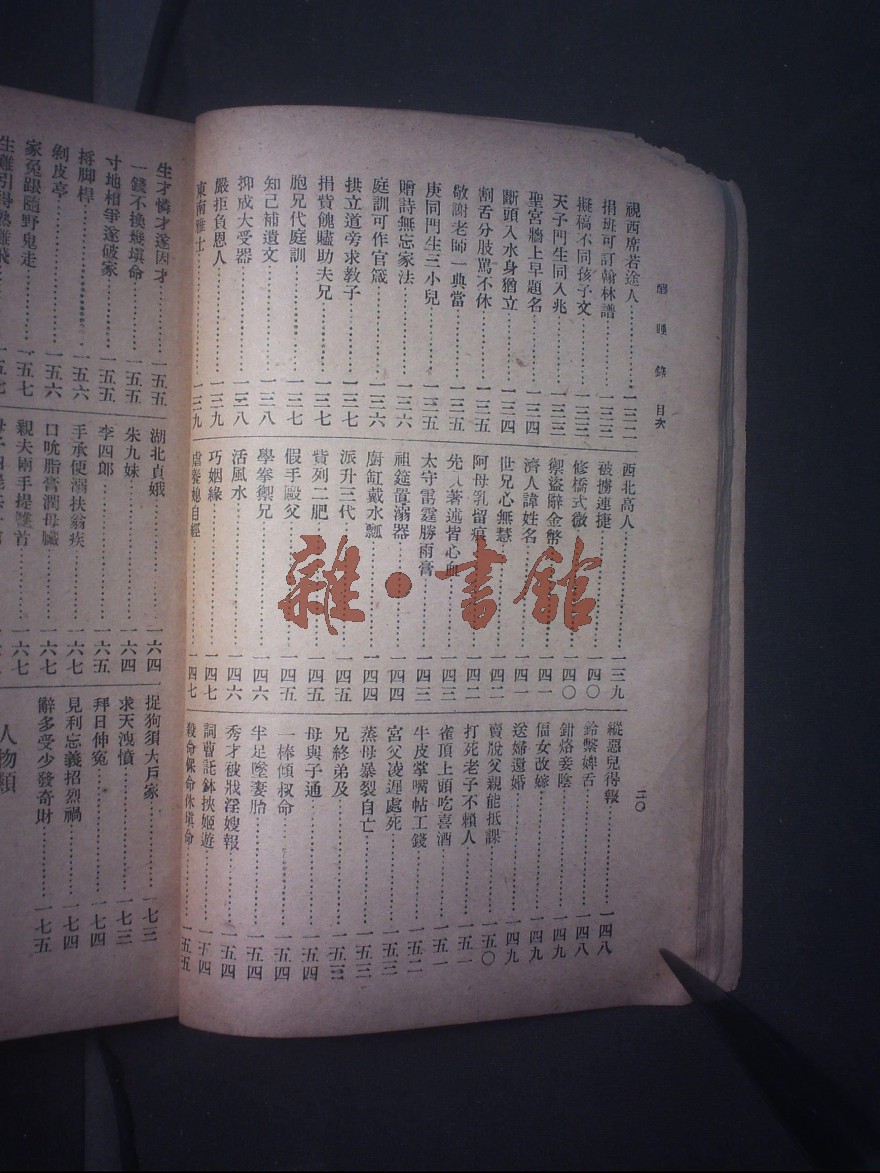 醒睡錄 目次
二〇
視西席若途人…………一三二
捐班可訂翰林譜…………一三三
擬稿不同孩子文…………一三三
天子門生同入兆…………一三三
聖宮牆上早題名…………一三四
斷頭入水身猶立…………一三四
割舌分肢罵不休…………一三五
敬謝老師一典當…………一三五
庚同門生三小兒…………一三五
贈詩無忘家法…………一三六
庭訓可作官箴…………一三六
拱立道旁求教子…………一三七
捐貲餽贐助夫兄…………一三七
胞兄代庭訓…………一三七
知己補遺文…………一三八
抑成大受器…………一三八
嚴拒負恩人…………一三九
東南雅士…………一三九
西北高人…………一三九
被擄連捷…………一四〇
修橋式微…………一四〇
禦盜辭金幣…………一四一
濟人諱姓名…………一四一
世兄心無慧…………一四二
阿母乳留痕…………一四二
先人著述皆心血…………一四三
太守雷霆勝雨膏…………一四三
祖筵置溺器…………一四四
廚缸戴水瓢…………一四四
派升三代…………一四五
貲列二肥…………一四五
假手毆父…………一四五
學拳禦兄…………一四六
活風水…………一四六
巧姻緣…………一四七
虐養媳自經…………一四七
縱惡兒得報…………一四八
鈴繫婢舌…………一四八
鉗烙妾陰…………一四九
偪女改嫁…………一四九
送婦還婚…………一四九
賣脫父親能抵課…………一五〇
打死老子不賴人…………一五一
雀頂上頭吃喜酒…………一五一
牛皮掌嘴帖工錢…………一五二
宮父凌遲處死…………一五二
蒸母暴裂自亡…………一五三
兄終弟及…………一五三
母與子通…………一五四
一棒傾叔命…………一五四
半足墜妻胎…………一五四
秀才被戕淫嫂報…………一五四
詞曹託鉢挾姬遊…………一五四
殺命保命休塡命…………一五五
生才憐才遂因才…………一五五
一錢不換幾塡命…………一五五
寸地相爭遂破家…………一五五
捋脚桿…………一五六
剝皮亭…………一五六
家冤跟隨野鬼走…………一五七
一五七
湖北貞娥…………一六四
朱九妹…………一六四
李四郎…………一六五
手承便溺扶翁疾…………一六七
口吮脂膏潤母臟…………一六七
親夫兩手提雙首…………一六七
捉狗須大戶家…………一七三
求天洩憤…………一七三
拜日伸冤…………一七四
見利忘義招烈禍…………一七四
辭多受少發奇財…………一七五
人物類
雜·書館